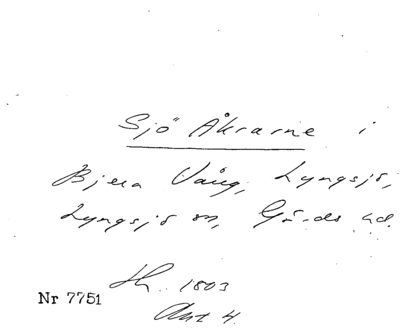 Sjö Åkrarne i
Bjera Vång, Lyngsjö,
Lyngsjö sn, Gärds hd.
Sk. 1803
Nr 7751
Akt 4.